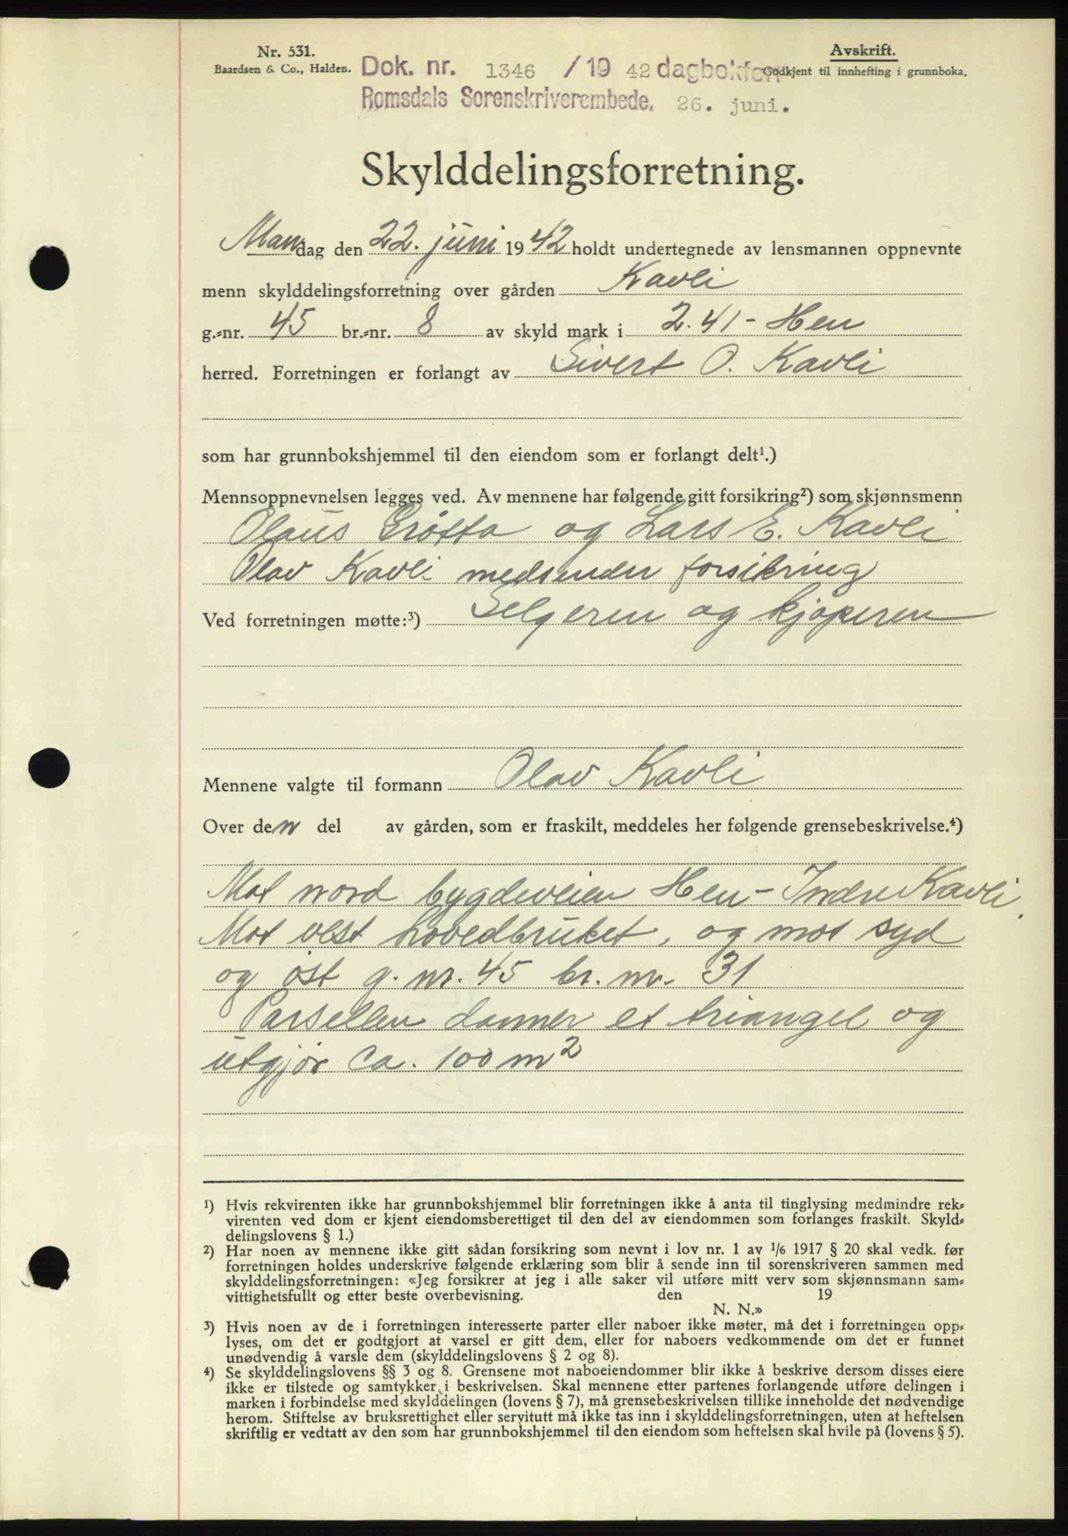 Nr. 531.
Baardsen & Co., Halden.
Avskrift.
Godkjent til innhefting i grunnboka.
Dok. nr. 1346 / 19 42 dagboken
Romsdals Sorenskriverembede. 26. juni.
Skylddelingsforretning.
Mandag den 22. juni 1942 holdt undertegnede av lensmannen oppnevnte
menn skylddelingsforretning over gården Kavli
g.-nr. 45 br.-nr. 8 av skyld mark i 2.41 - Hen
herred. Forretningen er forlangt av Sivert O. Kavli
som har grunnbokshjemmel til den eiendom som er forlangt delt¹.)
Mennsoppnevnelsen legges ved. Av mennene har følgende gitt forsikring²) som skjønnsmenn
Olaus Grøtta og Lars E. Kavli
Olav Kavli medsender forsikring
Ved forretningen møtte:³) Selgeren og kjøperen
Mennene valgte til formann Olav Kavli
Over den del av gården, som er fraskilt, meddeles her følgende grensebeskrivelse.⁴)
Mot nord bygdeveien Hen - Indre Kavli.
Mot vest hovedbruket, og mot syd
og øst g. nr. 45 br. nr. 31
Parsellen danner et triangel og
utgjør ca. 100 m²
¹) Hvis rekvirenten ikke har grunnbokshjemmel blir forretningen ikke å anta til tinglysing medmindre rek-
virenten ved dom er kjent eiendomsberettiget til den del av eiendommen som forlanges fraskilt. Skyld-
delingslovens § 1.)
²) Har noen av mennene ikke gitt sådan forsikring som nevnt i lov nr. 1 av 1/6 1917 § 20 skal vedk. før
forretningen holdes underskrive følgende erklæring som blir å sende inn til sorenskriveren sammen med
skylddelingsforretningen: «Jeg forsikrer at jeg i alle saker vil utføre mitt verv som skjønnsmann sam-
vittighetsfullt og etter beste overbevisning. den 19
N. N.»
³) Hvis noen av de i forretningen interesserte parter eller naboer ikke møter, må det i forretningen opp-
lyses, om det er godtgjort at varsel er gitt dem, eller for naboers vedkommende om det er funnet
unødvendig å varsle dem (skylddelingslovens § 2 og 8).
⁴) Se skylddelingslovens §§ 3 og 8. Grensene mot naboeiendommer blir ikke å beskrive dersom disses eiere
ikke er tilstede og samtykker i beskrivelsen. Skal mennene etter partenes forlangende utføre delingen i
marken i forbindelse med skylddelingen (lovens § 7), må grensebeskrivelsen tillike inneholde det nødvendige
herom. Stiftelse av bruksrettighet eller servitutt må ikke tas inn i skylddelingsforretningen, uten at heftelsen
skriftlig er vedtatt av den som har grunnbokshjemmel til den eiendom som heftelsen skal hvile på (lovens § 5).